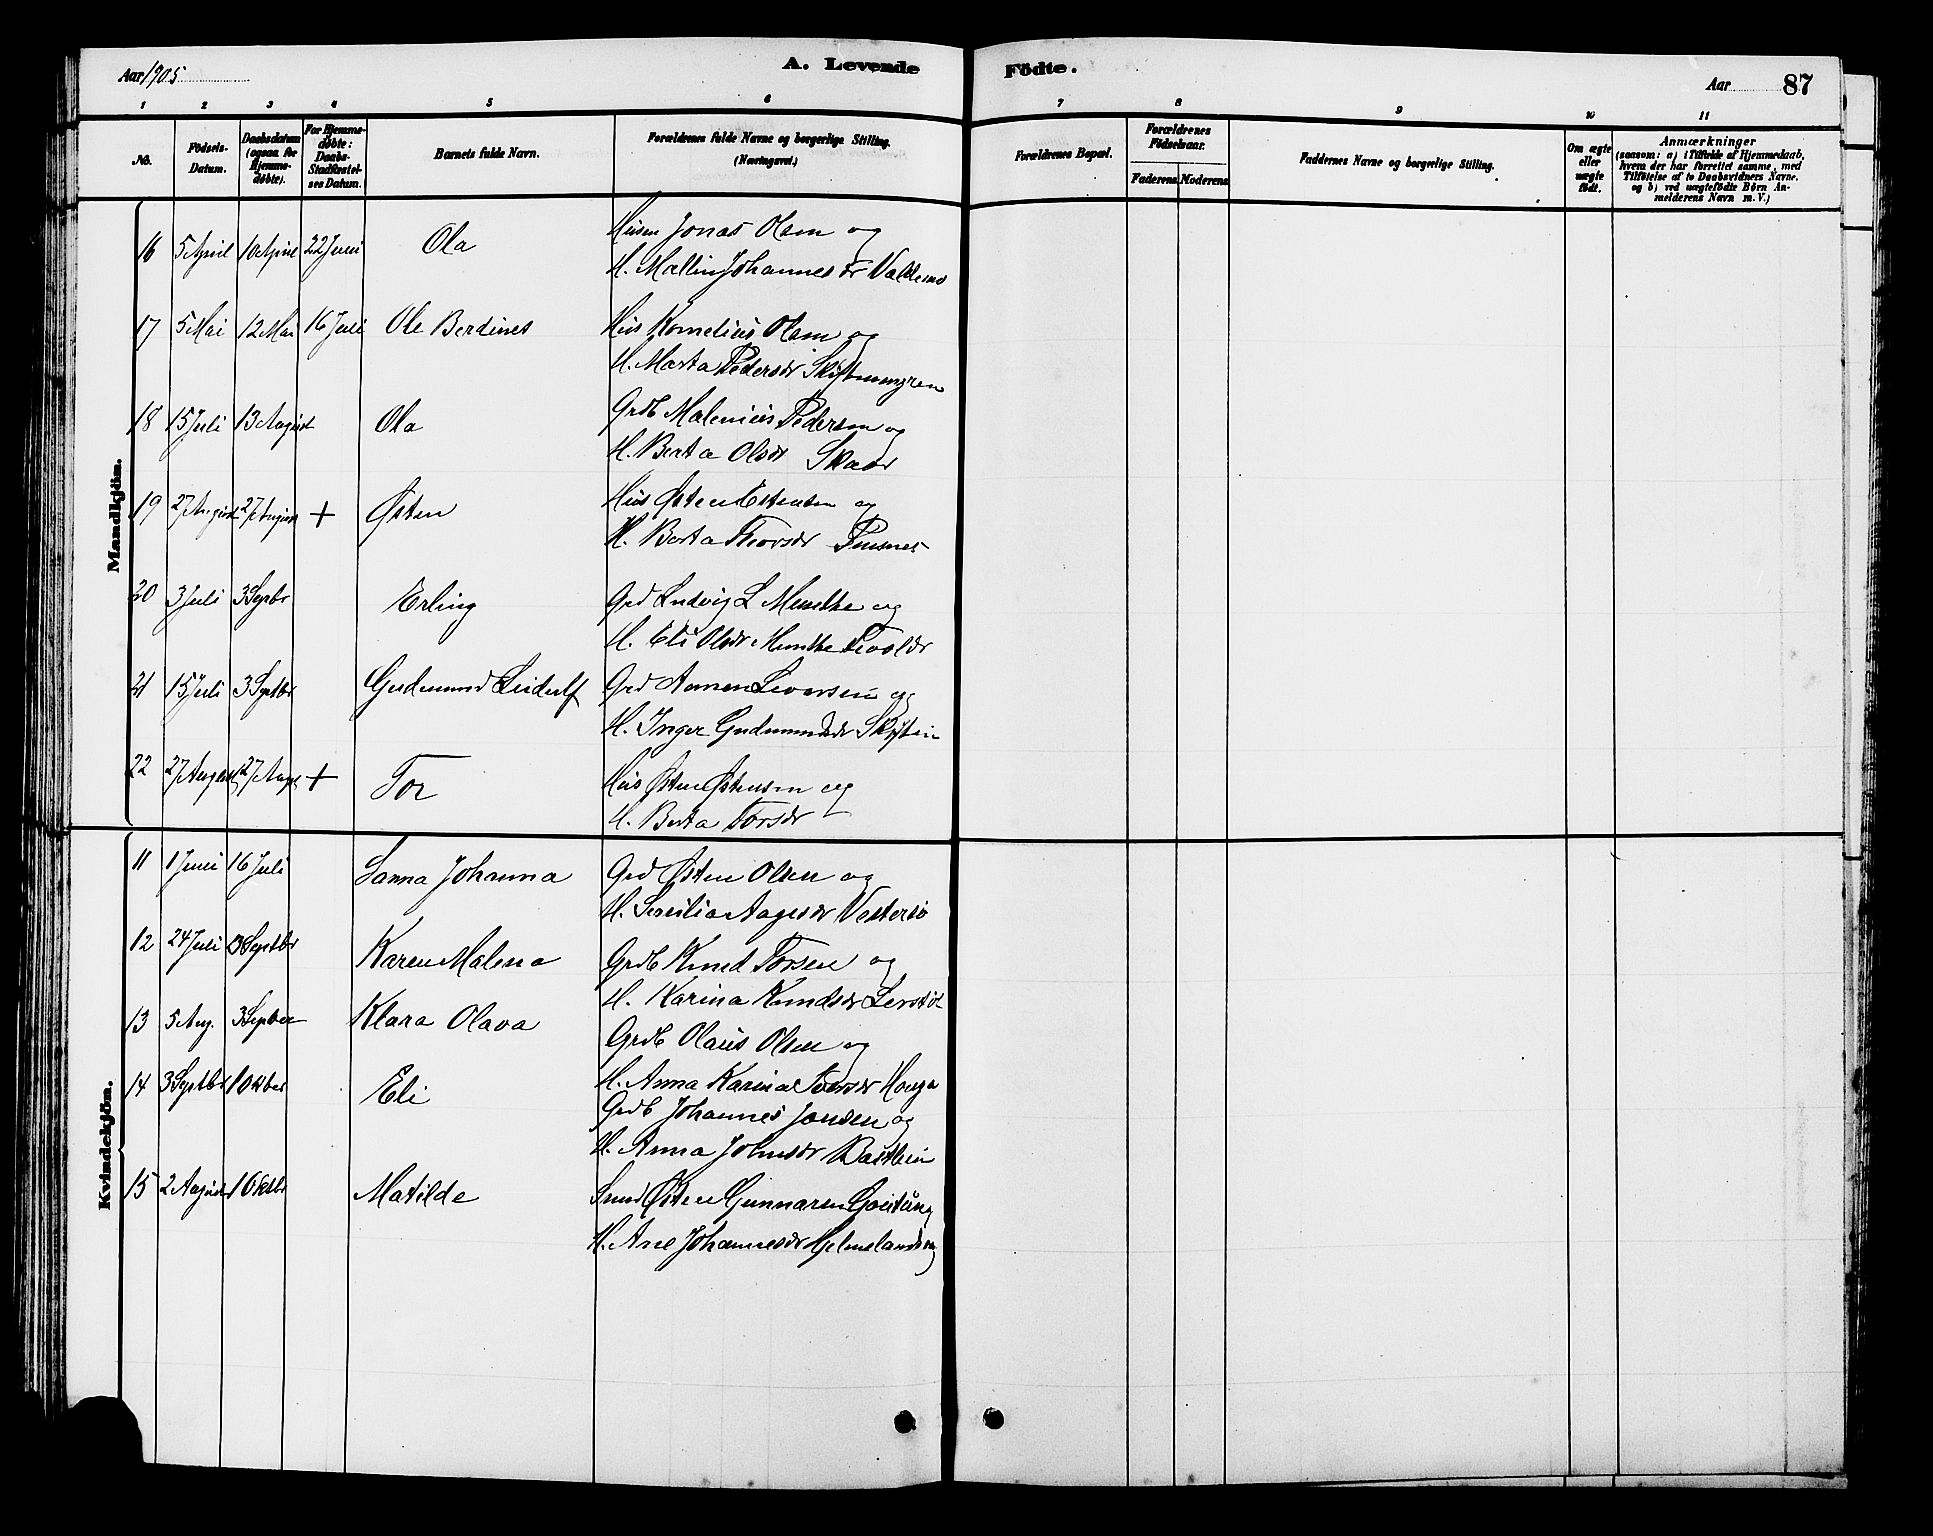 Aar 1905
A. Levende Födte.
Aar 87
1 2 3 4 5 6 7 8 9 10 11
No.
Födsels-Datum.
Daabsdatum (ogsaa for Hjemme-døbte).
For Hjemme-døbte: Daabs-Stadfæstel-ses Datum.
Barnets fulde Navn.
Forældrenes fulde Navne og borgerlige Stilling. (Næringsvei.)
Forældrenes Bopæl.
Forældrenes Födselsaar.
Faderens Moderens
Faddernes Navne og borgerlige Stilling.
Om ægte eller uægte födt.
Anmærkninger
(saasom: a) i Tilfælde af Hjemmedaab,
hvem der har forrettet samme, med
Tilföielse af to Daabsvidners Navne.
og b) ved uægtefödte Börn An-
melderens Navn m.V.)
Mandkjön.
16 5 April 10 April 22 Juni Ola Jonas Olsen og
H. Mallin Johannesdr Valdemo
17 5 Mai 12 Mai 16 Juli Ole Berdines Hus Kornelius Olsen og
H. Marta Pedersdr Skiftunmyren
18 15 Juli 13 August Ola Grdb Malenius Pedersen og
H. Berta Olsdr Skaar
19 27 August 27 August + Østen Hus Østen Estensen og
H. Berta Thorsdr
20 3 Juli 3 Septbr Erling Grd Ludvig L Munthe og
H. Eli Olsdr Munthe
21 15 Juli 3 Septbr Gudmund Leidulf Grd og
H. Inger Gudmundsdr
22 27 August 27 Aug + Tor Hus Østen Østensen og
H. Berta Torsdr
Kvindekjön.
11 1 Juni 16 Juli Sanna Johanna Grd Østen Olsen og
H. Seresilia Aagesdr Vestersö
12 24 Juli 3 Septbr Karen Malena Grdb Knud Torsen og
H. Karina Knudsdr
13 5 Aug. 3 September Klara Olava Grdb Olaus Olsen og
H. Anna Karina Iversdr Hauga
14 3 Septbr 1 Oktber Eli Grdb Johannes Jonsen og
H. Anna Johnsdr
15 2 August 1 Oktbr Matilde Østen Gunnarsen
H. Ane Johannesdr